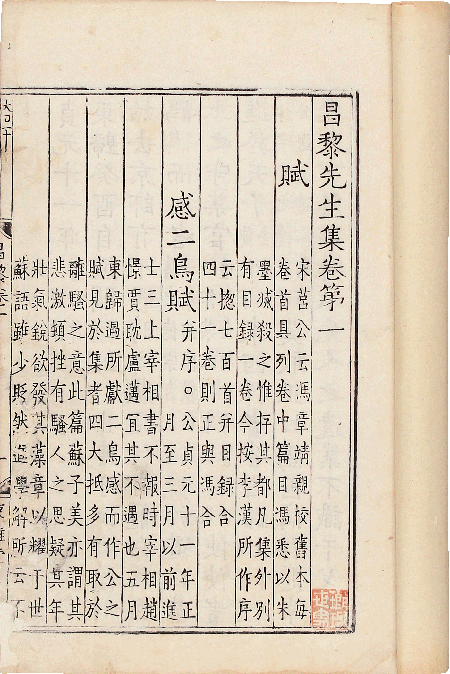 昌黎先生集卷第一
賦
宋莒公云馮章靖親校舊本每
卷首具列卷中篇目馮悉以朱
墨滅殺之惟存其都凡集外別
有目録一卷今按李漢所作序
云惣七百首并目録合
四十一卷則正與馮合
感二鳥賦
并序。公貞元十一年正
月至三月以前進
士三上宰相書不報時宰相趙
憬賈耽盧邁冝其不遇也五月
東歸過所獻二鳥感而作公之
賦見於集者四大抵多有取於
離騷之意此篇蘇子美亦謂其
悲激頓挫有騷人之思疑其年
壯氣銳欲發其藻章以耀于世
蘇語雖少貶然進學解所云不
昌黎卷一